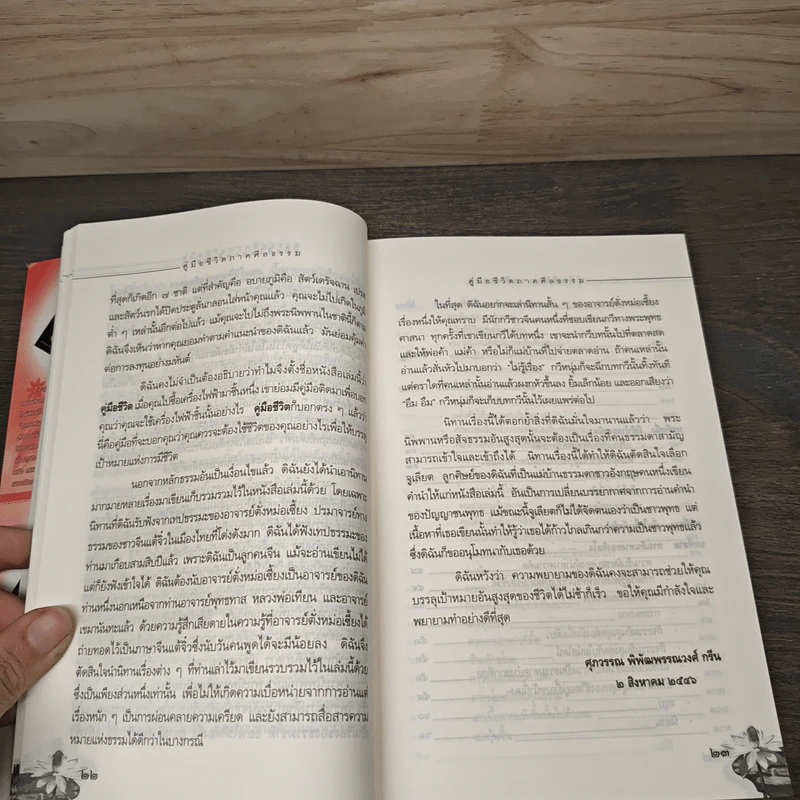 คู่มือชีวิตภาคศีลธรรม
ที่สุดก็เกิดอีก ๗ ชาติ แต่ที่สำคัญคือ อบายภูมิคือ สัตว์เดรัจฉาน เปรต
และสัตว์นรกได้ปิดประตูลั่นกลอนใส่หน้าคุณแล้ว คุณจะไม่ไปเกิดในภูมิ
ต่ำ ๆ เหล่านั้นอีกต่อไปแล้ว แม้คุณจะไปไม่ถึงพระนิพพานในชาตินี้ก็ตาม
ดิฉันจึงเห็นว่าหากคุณยอมทำตามคำแนะนำของดิฉันแล้ว มันย่อมคุ้มค่า
ต่อการลงทุนอย่างมหันต์
ดิฉันคงไม่จำเป็นต้องอธิบายว่าทำไมจึงตั้งชื่อหนังสือเล่มนี้ว่า
คู่มือชีวิต เมื่อคุณไปซื้อเครื่องไฟฟ้ามาชิ้นหนึ่ง เขาย่อมมีคู่มือติดมาเพื่อบอก
คุณว่าคุณจะใช้เครื่องไฟฟ้าชิ้นนั้นอย่างไร คู่มือชีวิตก็บอกตรง ๆ แล้วว่า
นี่คือคู่มือที่จะบอกคุณว่าคุณควรจะต้องใช้ชีวิตของคุณอย่างไรเพื่อให้บรรลุ
เป้าหมายแห่งการมีชีวิต
นอกจากหลักธรรมอันเป็นเงื่อนไขแล้ว ดิฉันยังได้นำเอานิทาน
มากมายหลายเรื่องมาเขียนเก็บรวบรวมไว้ในหนังสือเล่มนี้ด้วย โดยเฉพาะ
นิทานที่ดิฉันรับฟังจากเทปธรรมะของอาจารย์ตั่งหม่อเซี้ยง ปรมาจารย์ทาง
ธรรมของชาวจีนแต้จิ๋วในเมืองไทยที่โด่งดังมาก ดิฉันได้ฟังเทปธรรมะของ
ท่านมาเกือบสามสิบปีแล้ว เพราะดิฉันเป็นลูกคนจีน แม้จะอ่านเขียนไม่ได้
แต่ก็ยังฟังเข้าใจได้ ดิฉันต้องนับอาจารย์ตั่งหม่อเซี้ยงเป็นอาจารย์ของดิฉัน
ท่านหนึ่งนอกเหนือจากท่านอาจารย์พุทธทาส หลวงพ่อเทียน และอาจารย์
เขมานันทะแล้ว ด้วยความรู้สึกเสียดายในความรู้ที่อาจารย์ตั่งหม่อเซี้ยงได้
ถ่ายทอดไว้เป็นภาษาจีนแต้จิ๋วซึ่งนับวันคนพูดได้จะมีน้อยลง ดิฉันจึง
ตัดสินใจนำนิทานเรื่องต่าง ๆ ที่ท่านเล่าไว้มาเขียนรวบรวมไว้ในเล่มนี้ด้วย
ซึ่งเป็นเพียงส่วนหนึ่งเท่านั้น เพื่อไม่ให้เกิดความเบื่อหน่ายจากการอ่านแต่
เรื่องหนัก ๆ เป็นการผ่อนคลายความเครียด และยังสามารถสื่อสารความ
หมายแห่งธรรมได้ดีกว่าในบางกรณี
๒๒
คู่มือชีวิตภาคศีลธรรม
ในที่สุด ดิฉันอยากจะเล่านิทานสั้น ๆ ของอาจารย์ตั่งหม่อเซี้ยง
เรื่องหนึ่งให้คุณทราบ มีนักกวีชาวจีนคนหนึ่งที่ชอบเขียนบทกวีทางพระพุทธ
ศาสนา ทุกครั้งที่เขาเขียนกวีได้บทหนึ่ง เขาจะนำกวีบทนั้นไปที่ตลาดสด
และให้พ่อค้า แม่ค้า หรือไม่ก็แม่บ้านที่ไปจ่ายตลาดอ่าน ถ้าคนเหล่านั้น
อ่านแล้วสั่นหัวไปมาบอกว่า “ไม่รู้เรื่อง” กวีหนุ่มก็จะฉีกบทกวีนั้นทิ้งทันที
แต่คราใดที่คนเหล่านั้นอ่านแล้วผงกหัวขึ้นลง ยิ้มเล็กน้อย และออกเสียงว่า
“อืม อืม” กวีหนุ่มก็จะเก็บบทกวีนั้นไว้เผยแพร่ต่อไป
นิทานเรื่องนี้ได้ตอกย้ำสิ่งที่ดิฉันมั่นใจมานานแล้วว่า พระ
นิพพานหรือสัจธรรมอันสูงสุดนั้นจะต้องเป็นเรื่องที่คนธรรมดาสามัญ
สามารถเข้าใจและเข้าถึงได้ นิทานเรื่องนี้ได้ทำให้ดิฉันตัดสินใจเลือก
จูเลียต ลูกศิษย์ของดิฉันที่เป็นแม่บ้านธรรมดาชาวอังกฤษคนหนึ่งเขียน
คำนำให้แก่หนังสือเล่มนี้ อันเป็นการเปลี่ยนบรรยากาศจากการอ่านคำนำ
ของปัญญาชนพุทธ แม้ขณะนี้จูเลียตก็ไม่ได้จัดตนเองว่าเป็นชาวพุทธ แต่
เนื้อหาที่เธอเขียนนั้นทำให้รู้ว่าเธอได้ก้าวไกลเกินกว่าความเป็นชาวพุทธแล้ว
ซึ่งดิฉันก็ขออนุโมทนากับเธอด้วย
ดิฉันหวังว่า ความพยายามของดิฉันคงจะสามารถช่วยให้คุณ
บรรลุเป้าหมายอันสูงสุดของชีวิตได้ไม่ช้าก็เร็ว ขอให้คุณมีกำลังใจและ
พยายามทำอย่างดีที่สุด
ศุภวรรณ พิพัฒพรรณวงศ์ กรีน
๒ สิงหาคม ๒๕๔๖
๒๓